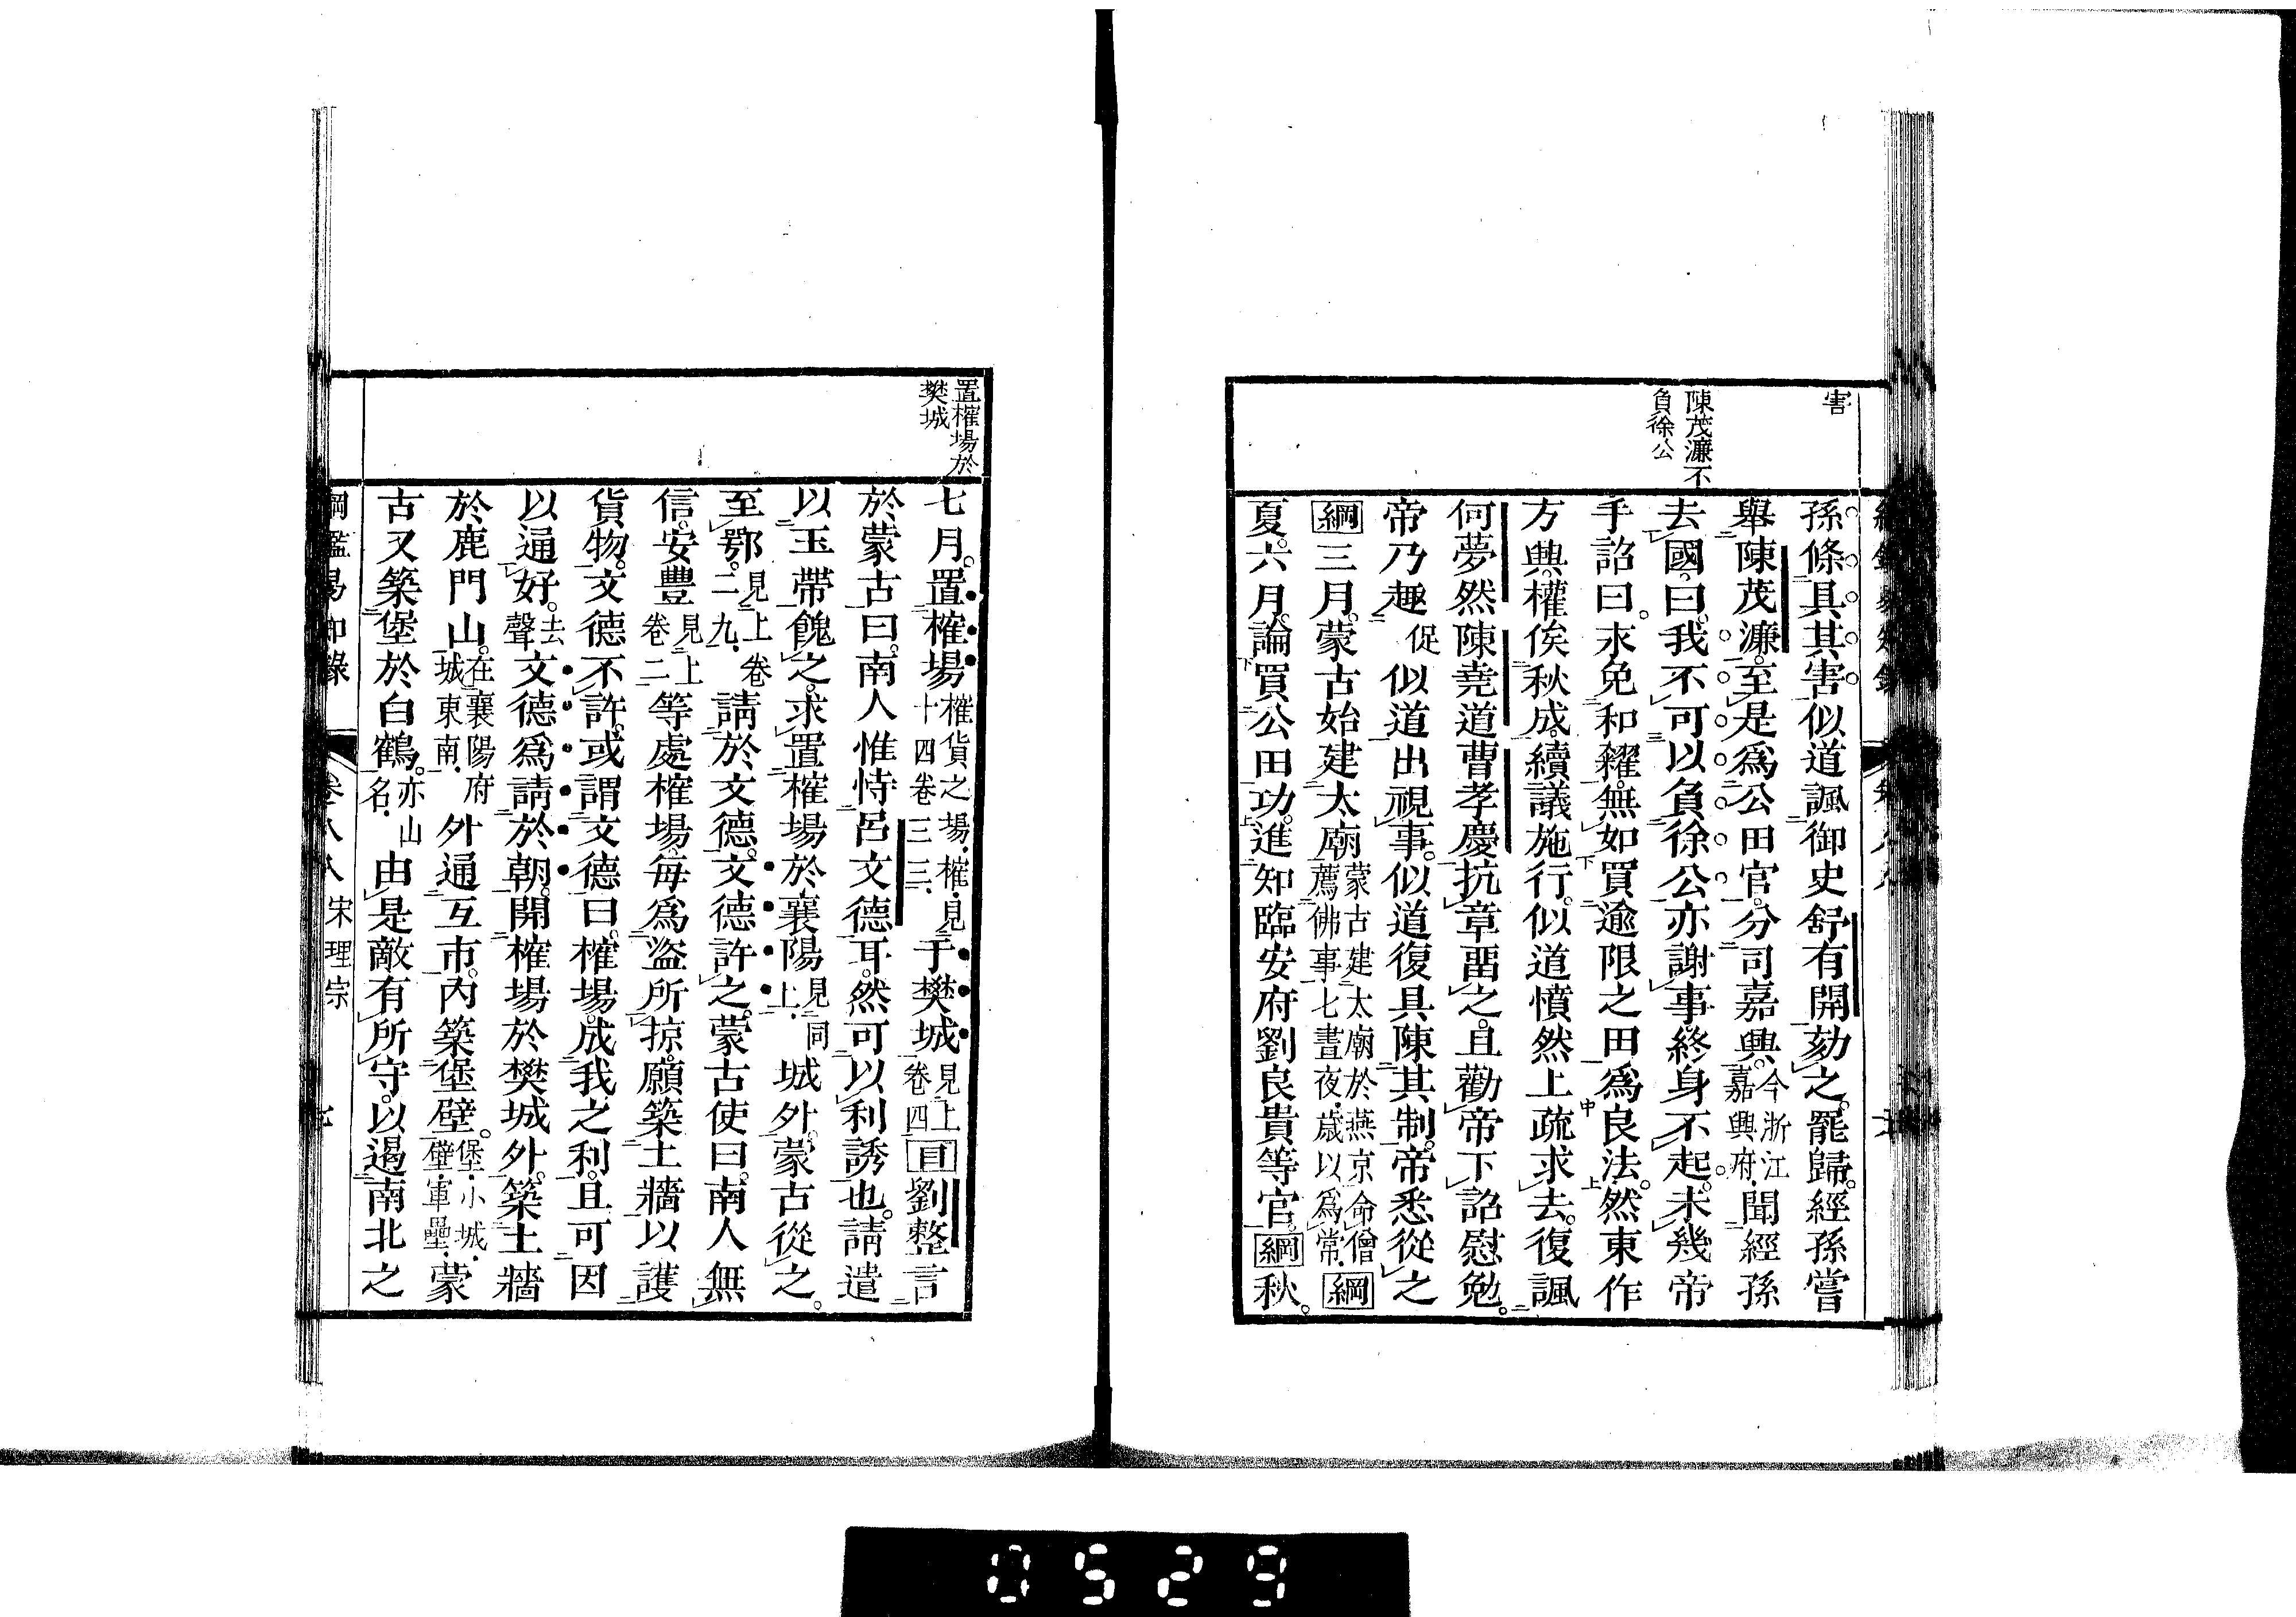 害
陳茂濂不
負徐公
孫條具其害似道諷御史舒有開劾之罷歸經孫嘗
舉陳茂濂至是爲公田官分司嘉興今浙江嘉興府聞經孫
去國曰我不可以負徐公亦謝事終身不起未幾帝
手詔曰求免和糴無如買逾限之田爲良法然東作
方興權俟秋成續議施行似道憤然上疏求去復諷
何夢然陳堯道曹孝慶抗章留之且勸帝下詔慰勉
帝乃趣促似道出視事似道復具陳其制帝悉從之
綱三月蒙古始建太廟蒙古建太廟於燕京命僧薦佛事七晝夜歲以爲常綱
夏六月論買公田功進知臨安府劉良貴等官綱秋
置榷場於
樊城
七月置榷場榷貨之場榷見十四卷三三于樊城見上卷四目劉整言
於蒙古曰南人惟恃呂文德耳然可以利誘也請遣
以玉帶餽之求置榷場於襄陽見同上城外蒙古從之
至鄂見上卷二九請於文德文德許之蒙古使曰南人無
信安豐見上卷二等處榷場每爲盜所掠願築土牆以護
貨物文德不許或謂文德曰榷場成我之利且可因
以通好去聲文德爲請於朝開榷場於樊城外築土牆
於鹿門山在襄陽府城東南外通互市內築堡壁堡小城壁軍壘蒙
古又築堡於白鶴亦山名由是敵有所守以遏南北之
綱鑑易知錄 卷八八 宋理宗
0529